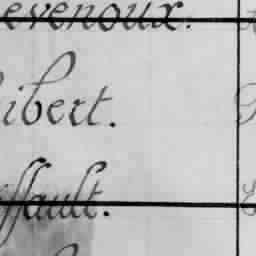 evenoux.
ibert.
ffault.